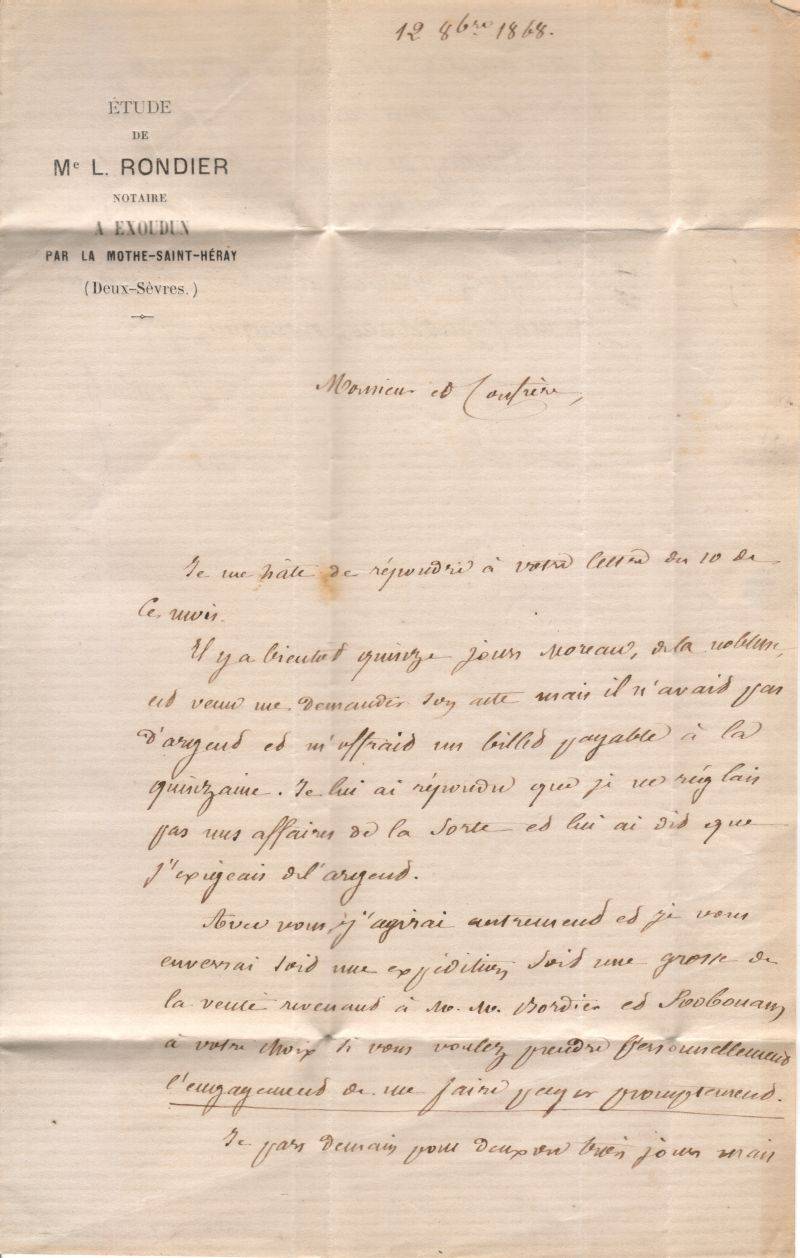 12 8bre 1868.
ÉTUDE
DE
Me L. RONDIER
NOTAIRE
A EXOUDUN
PAR LA MOTHE-SAINT-HÉRAY
(Deux-Sèvres.)
Monsieur et Confrère,
Je me hâte de répondre à votre lettre du 10 de
Ce mois.
Il y a bientot quinze jours Moreau, de la noblesse,
est venu me demander son acte mais il n'avait pas
d'argent et m'offrait un billet payable à la
quinzaine. Je lui ai répondu que je ne réglais
pas mes affaires de la sorte et lui ai dit que
j'exigeais de l'argent.
Avec vous j'agirai autrement et je vous
enverrai soit une expédition soit une grosse de
la vente revenant à M. M. Bordier et
à votre choix si vous voulez prendre personnellement
l'engagement de me faire payer promptement.
Je pars demain pour deux ou trois jours mais